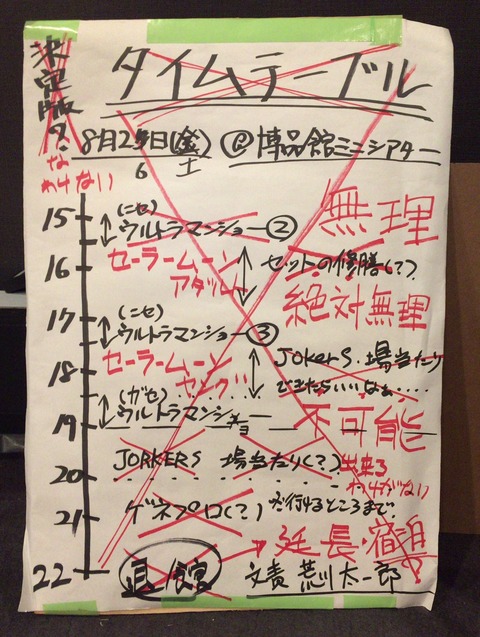 決定版?
な
わけない
タイムテーブル
8月25日(金) @ 博品館ミニシアター
6 土
15 (ニセ)
ウルトラマンショー②
無理
セーラームーン
アタック
16 セットの修膳(?)
絶対無理
17 (ニセ)
ウルトラマンショー③
セーラームーン
JOKERS・場当たり
18 できたらいいなぁ・・・・
(ガセ)
ウルトラマンショー
ョ
19 不可能
JORKERS 場当たり(?)
出来る
わけがない
20
21 ゲネプロ(?) が行けるところまで.
22 退館 → 延長・宿泊?
文責 荒川太一郎